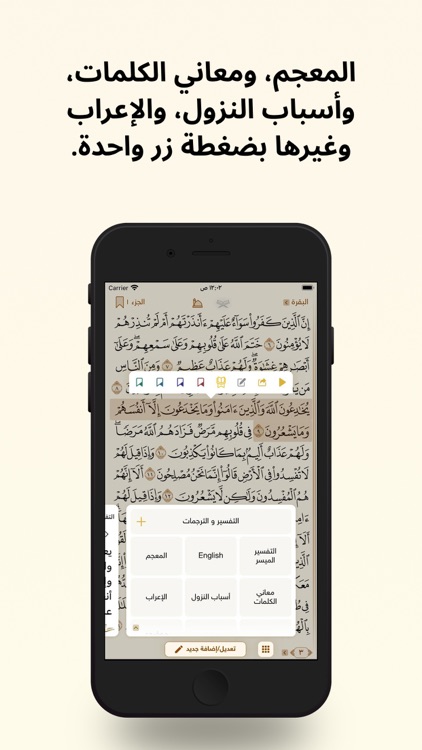 المعجم، ومعاني الكلمات،
وأسباب النزول، والإعراب
وغيرها بضغطة زر واحدة.
Carrier ١٢:٠٢ ص
البقرة الجزء ١
إِنَّ ٱلَّذِينَ كَفَرُوا۟ سَوَآءٌ عَلَيْهِمْ ءَأَنذَرْتَهُمْ أَمْ لَمْ تُنذِرْهُمْ
لَا يُؤْمِنُونَ ٦ خَتَمَ ٱللَّهُ عَلَىٰ قُلُوبِهِمْ وَعَلَىٰ سَمْعِهِمْ وَعَلَىٰٓ
أَبْصَٰرِهِمْ غِشَٰوَةٌ وَلَهُمْ عَذَابٌ عَظِيمٌ ٧ وَمِنَ ٱلنَّاسِ
يُخَٰدِعُونَ ٱللَّهَ وَٱلَّذِينَ ءَامَنُوا۟ وَمَا يَخْدَعُونَ إِلَّآ أَنفُسَهُمْ
وَمَا يَشْعُرُونَ ٩ فِى قُلُوبِهِم مَّرَضٌ فَزَادَهُمُ ٱللَّهُ مَرَضًا
وَلَهُمْ عَذَابٌ أَلِيمٌۢ بِمَا كَانُوا۟ يَكْذِبُونَ ١٠ وَإِذَا قِيلَ لَهُمْ
لَا تُفْسِدُوا۟ فِى ٱلْأَرْضِ قَالُوٓا۟ إِنَّمَا نَحْنُ مُصْلِحُونَ ١١ أَلَآ إِنَّهُمْ
هُمُ ٱلْمُفْسِدُونَ وَلَٰكِن لَّا يَشْعُرُونَ ١٢ وَإِذَا قِيلَ لَهُمْ
التفسير و الترجمات
التفسير الميسر English المعجم
معاني الكلمات أسباب النزول الإعراب
٣ تعديل/إضافة جديد